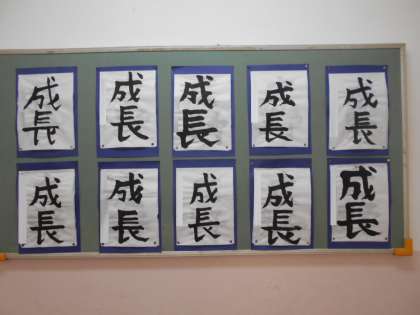 成長
成長
成長
成長
成長
成長
成長
成長
成長
成長